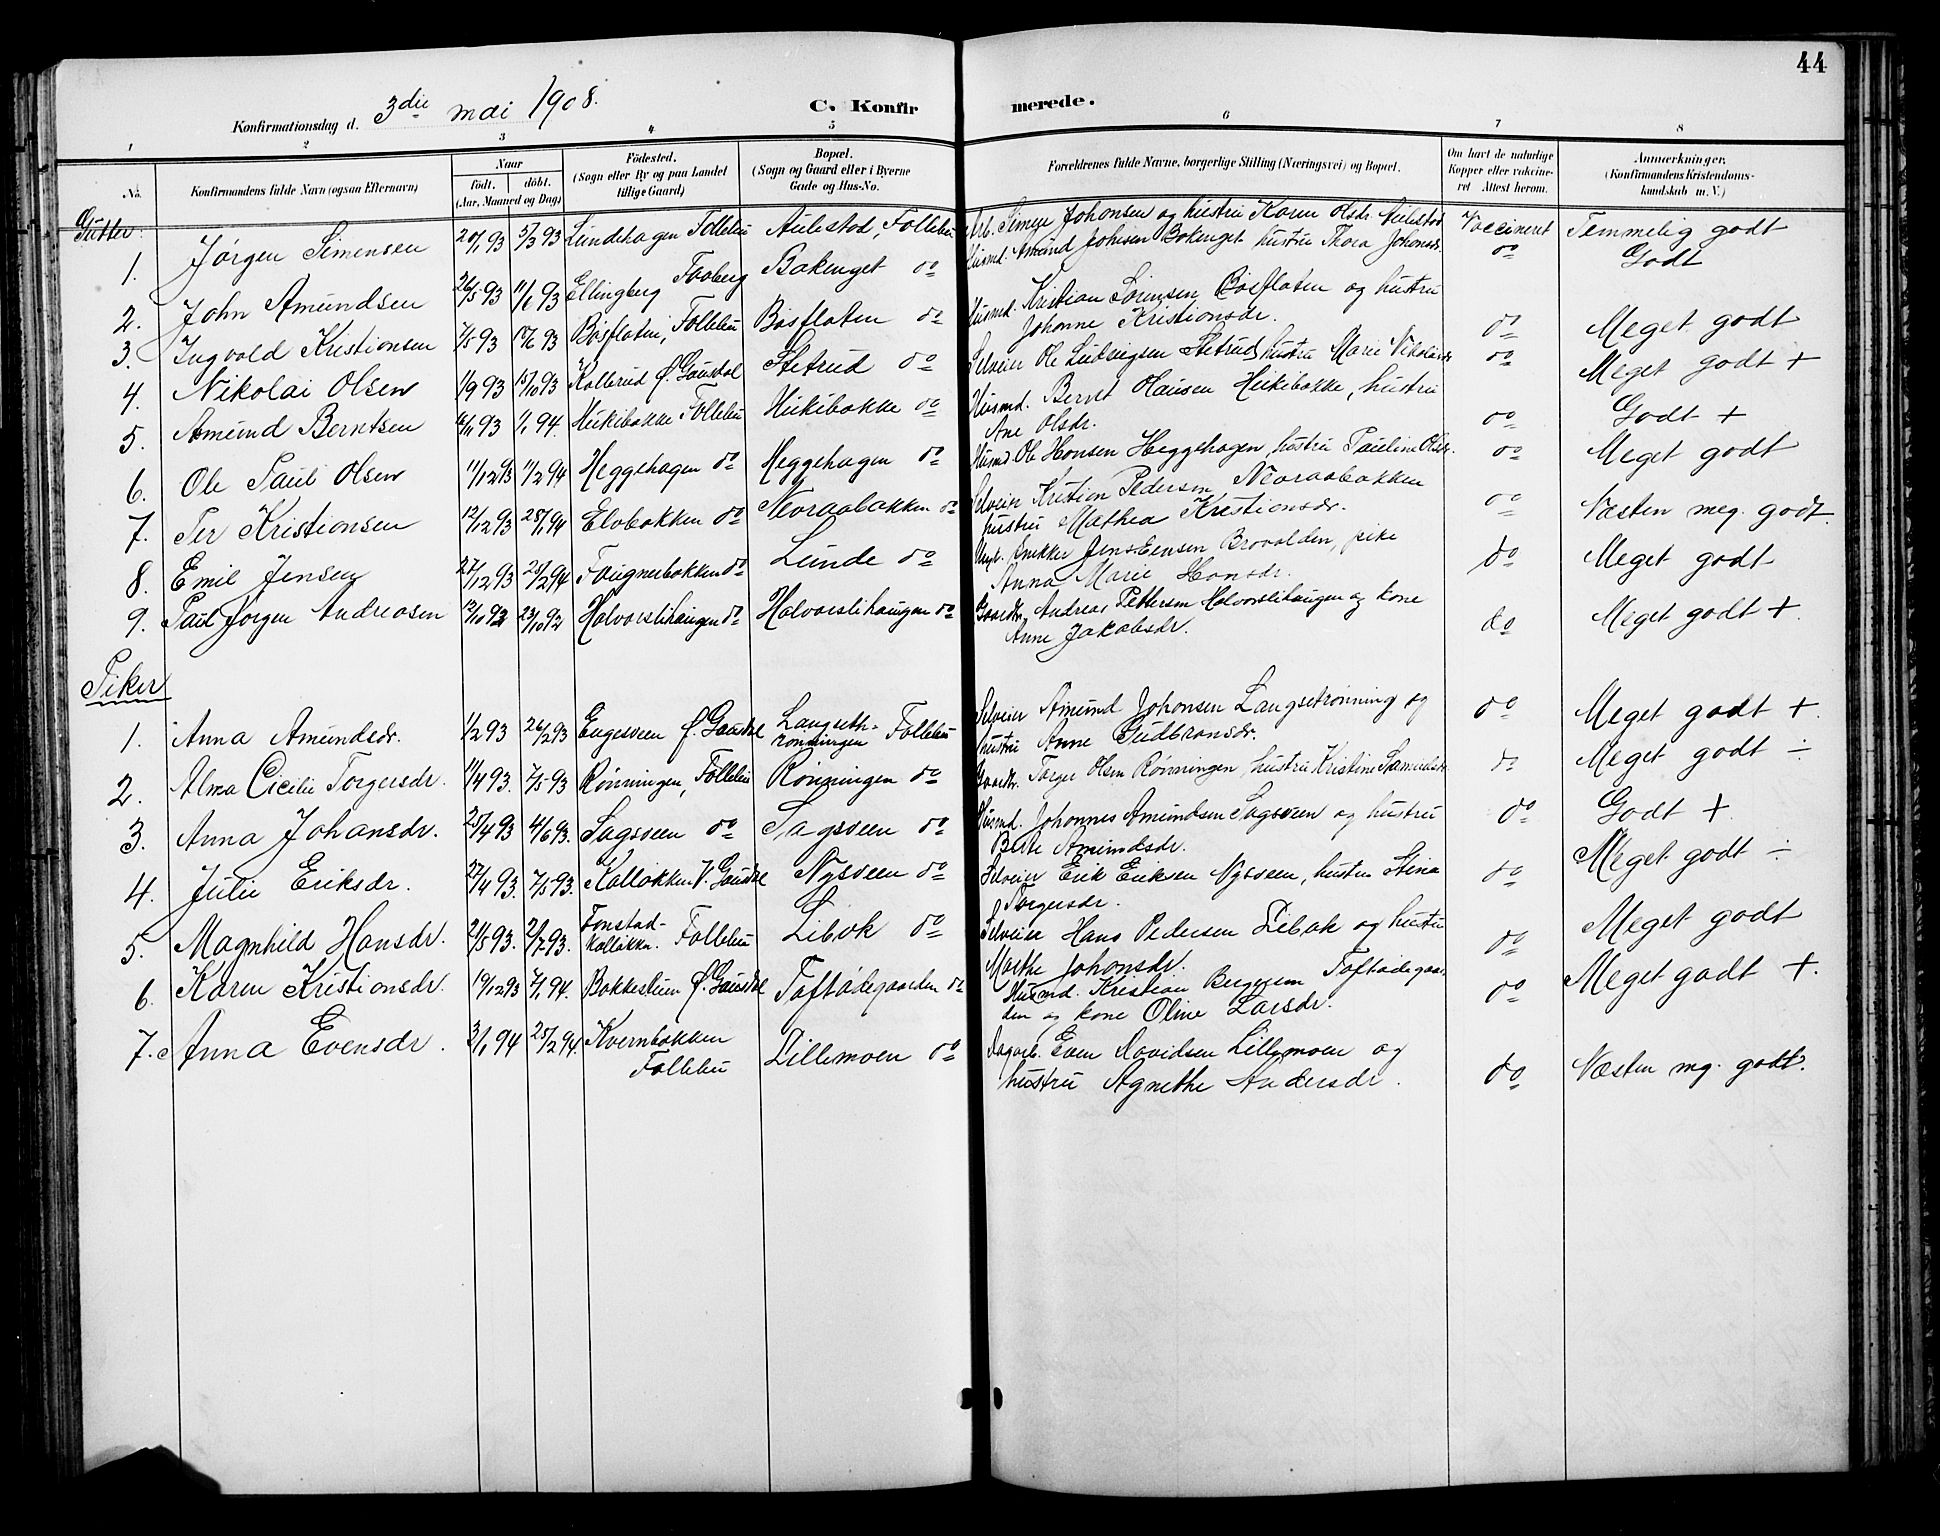 44
Konfirmationsdag d. 3die mai 1908.
C. Konfirmerede.
1 2 3 4 5 6 7 8
No.
Konfirmandens fulde Navn (ogsaa Efternavn)
Naar
født. døbt.
(Aar, Maaned og Dag)
Fødested.
(Sogn eller By og paa Landet
tillige Gaard)
Bopæl.
(Sogn og Gaard eller i Byerne
Gade og Hus-No.
Forældrenes fulde Navne, borgerlige Stilling (Næringsvei) og Bopæl.
Om havt de naturlige
Kopper eller vaccine-
ret Attest herom.
Anmærkninger.
(Konfirmandens Kristendoms-
kundskab m. V.)
Gutter.
1. Jørgen Simensen 20/1 93 5/3 93 Lundehagen Follebu Aulestad, Follebu Arb. Simen Johansen og hustru Karen Olsdr. Aulestad Vaccineret Temmelig godt
2. John Amundsen 26/5 93 11/6 93 Ellingberg Faaberg Bakenget do Husmd. Amund Johnsen Bakenget hustru Thora Johansdr. do Godt
3. Ingvald Kristiansen 7/5 93 17/6 93 Bøsflaten, Follebu Bøsflaten do Husmd. Kristian Sørensen Bøsflaten og hustru
Johanne Kristiansdr. do Meget godt
4. Nikolai Olsen 1/9 93 15/10 93 Kallerud Ø. Gausdal Stetrud do Selveier Ole Ludvigsen Stetrud, hustru Marie Nikolaisdr. do Meget godt +
5. Amund Berntsen 16/11 93 1/1 94. Hukibakke Follebu Hukibakke do Husmd. Bernt Hansen Hukibakke, hustru
Ane Olsdr. do Godt +
6. Ole Paul Olsen 11/12 93 11/2 94 Heggehagen do Heggehagen do Husmd. Ole Hansen Heggehagen, hustru Pauline Olsdr. do Meget godt
7. Per Kristiansen 12/12 93 28/1 94 Elvbakken do Nevraabakken do Selveier Kristian Pedersen Nevraabakken
hustru Mathea Kristiansdr. do Næsten meg. godt.
8. Emil Jensen 27/12 93 25/2 94 Faugnerbakken do Lunde do Ungk. Snekker Jens Jensen Brovolden, pike
Anna Marie Hansdr. do Meget godt
9. Paul Jørgen Andreasen 12/10 92 23/10 92 Halvorslihaugen do Halvorslihaugen do Gaardbr. Andreas Pettersen Halvorslihaugen og kone
Anne Jakobsdr. do Meget godt +.
Piker
1. Anna Amundsdr. 1/2 93 26/2 93 Engesveen Ø. Gausdal Langseth-
rønningen Follebu Selveier Amund Johansen Langsetrønning og
hustru Anne Gudbransdr. do Meget godt +.
2. Alma Cecilie Torgersdr. 11/4 93. 7/5 93 Rønningen, Follebu Rønningen do Gaardbr. Torger Olsen Rønningen, hustru Kristine Samuelsdr. do Meget godt ÷
3. Anna Johansdr. 25/4 93 4/6 93. Sagsveen do Sagsveen do Husmd. Johannes Amundsen Sagsveen og hustru
Beate Amundsdr. do Godt +.
4. Julie Eriksdr. 27/4 93. 7/5 93. Kalløkken V. Gausdal Nysveen do Selveier Erik Eriksen Nysveen, hustru Stina
Torgersdr. do Meget godt ÷
5. Magnhild Hansdr. 21/5 93. 2/7 93. Fonstad-
kalløkka. Follebu Libak do Selveier Hans Pedersen Libak og hustru
Marthe Johansdr. do Meget godt
6. Karen Kristiansdr. 19/12 93 7/1 94. Bakkestuen Ø. Gausdal Toftødegaarden do Husmd. Kristian Bergersen Toftødegaar-
den og kone Oline Larsdr. do Meget godt +.
7. Anna Evensdr. 3/1 94 25/2 94. Kvernbakken
Follebu Lillemoen do Dagarb. Even Davidsen Lillemoen og
hustru Agnethe Andersdr. do Næsten mg. godt.